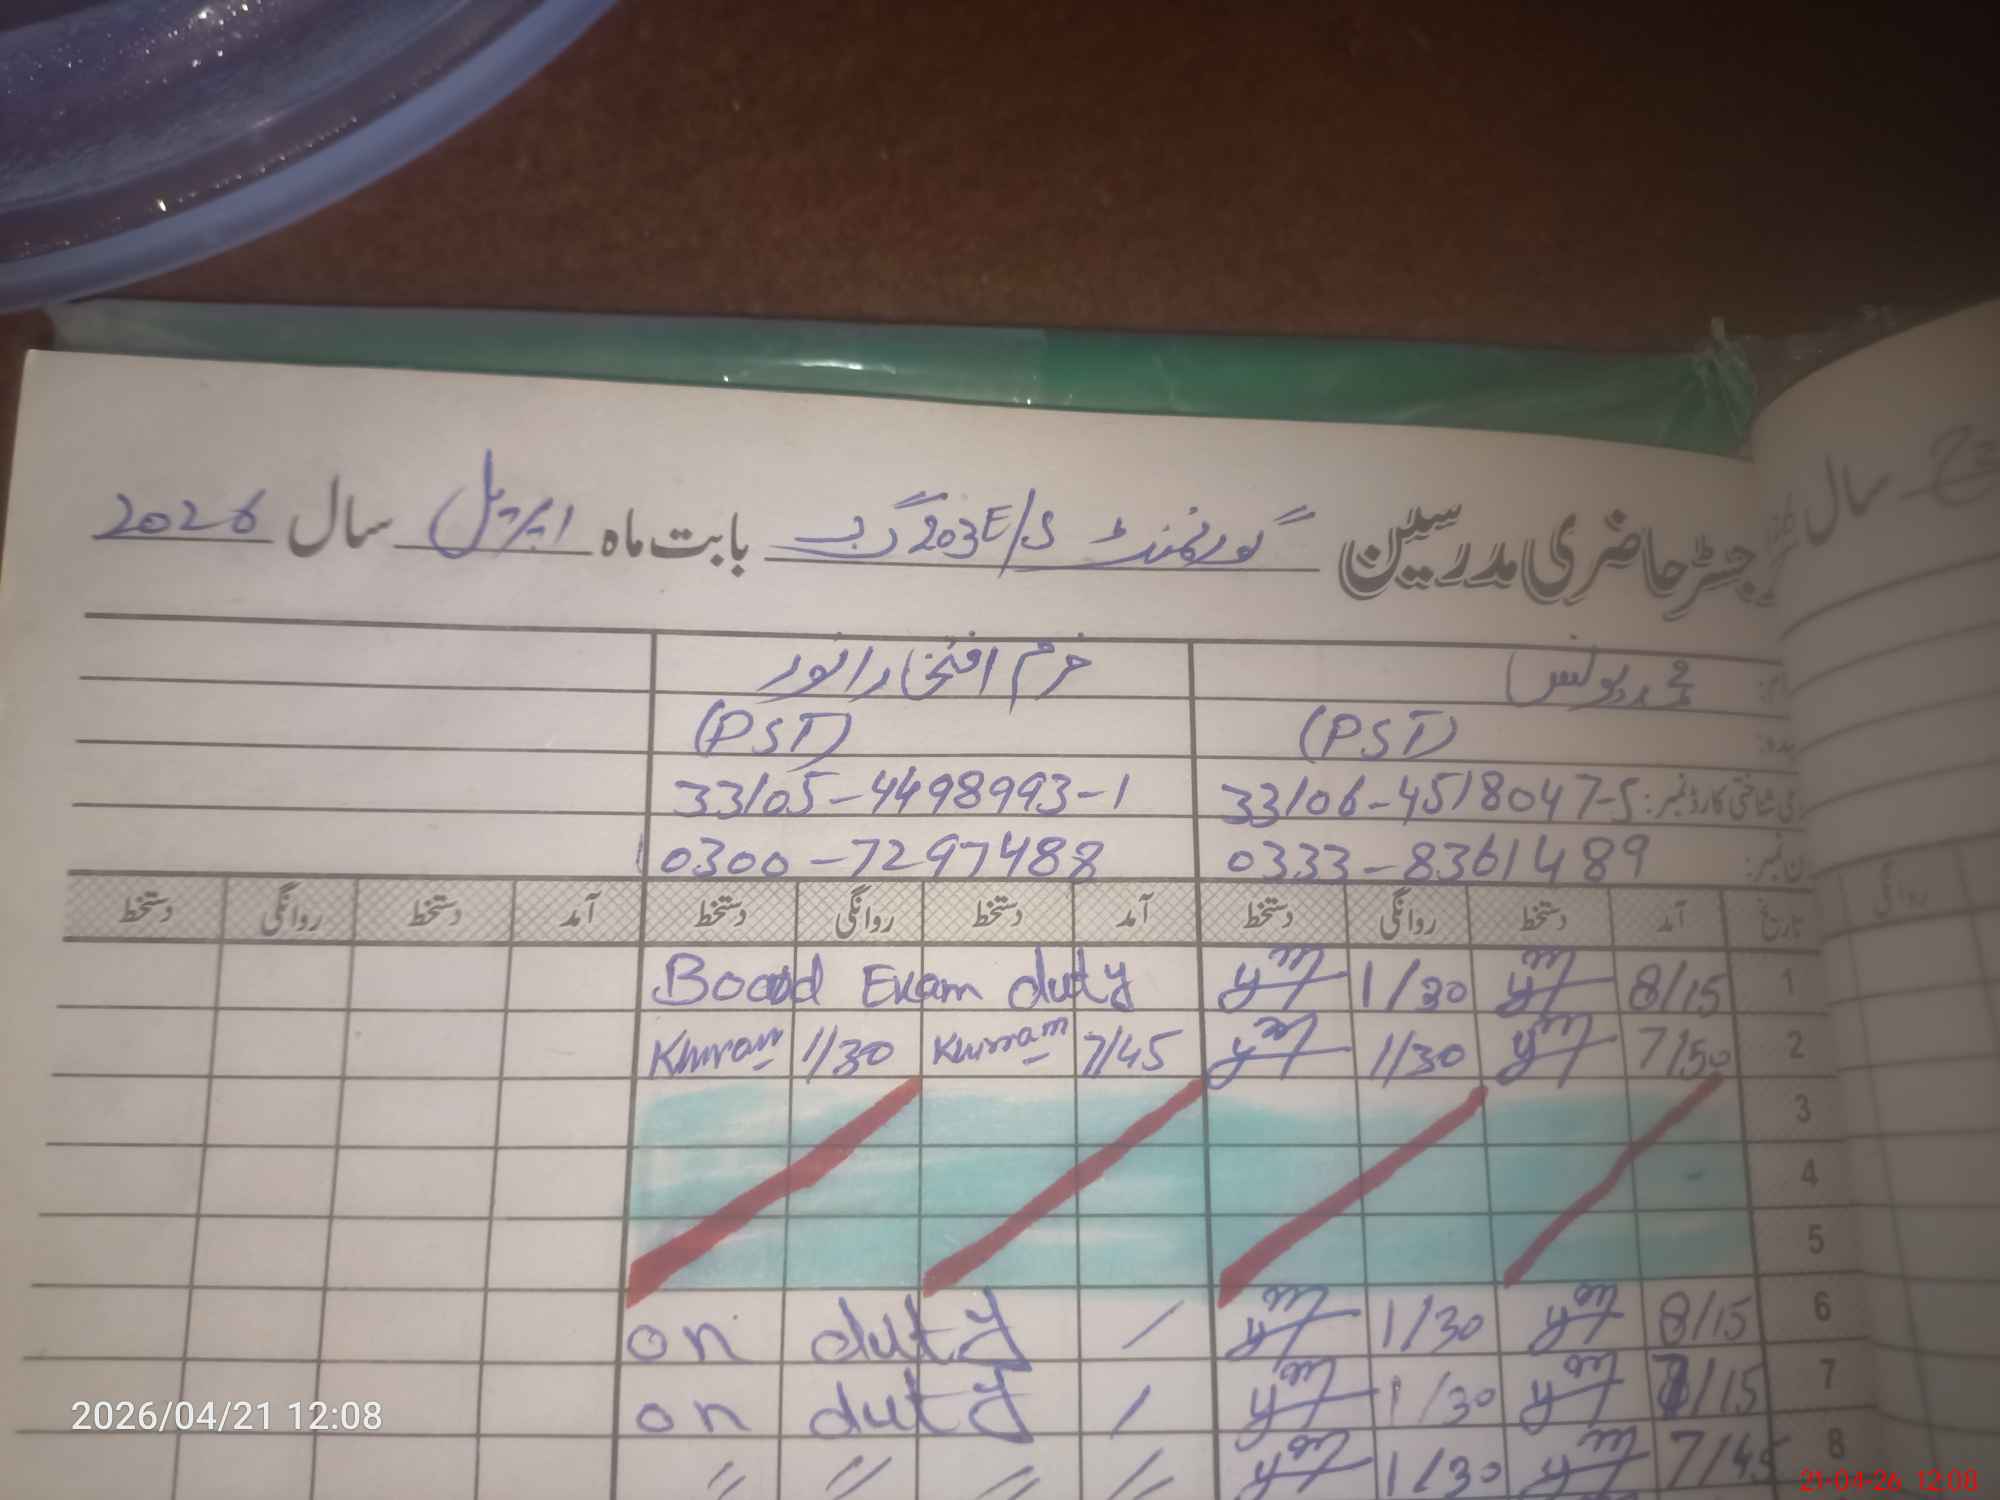 رجسٹر حاضری مدرسین گورنمنٹ E/S 203 گ ب بابت ماہ اپریل سال 2026
سال
نام: محمد یونس خرم افتخار انور
عہدہ: (PST) (PST)
شناختی کارڈ نمبر: 33106-4518047-5 33105-4498993-1
فون نمبر: 0333-8361489 0300-7297488
تاریخ آمد دستخط روانگی دستخط آمد دستخط روانگی دستخط آمد دستخط روانگی دستخط
روانگی
1 8/15 1/30 Board Exam duty
2 7/50 1/30 7/45 Khurram 1/30 Khurram
3
4
5
6 8/15 1/30 on duty /
7 8/15 1/30 on duty /
8 7/45 1/30 〃 〃 〃 〃
2026/04/21 12:08
21-04-26 12:08